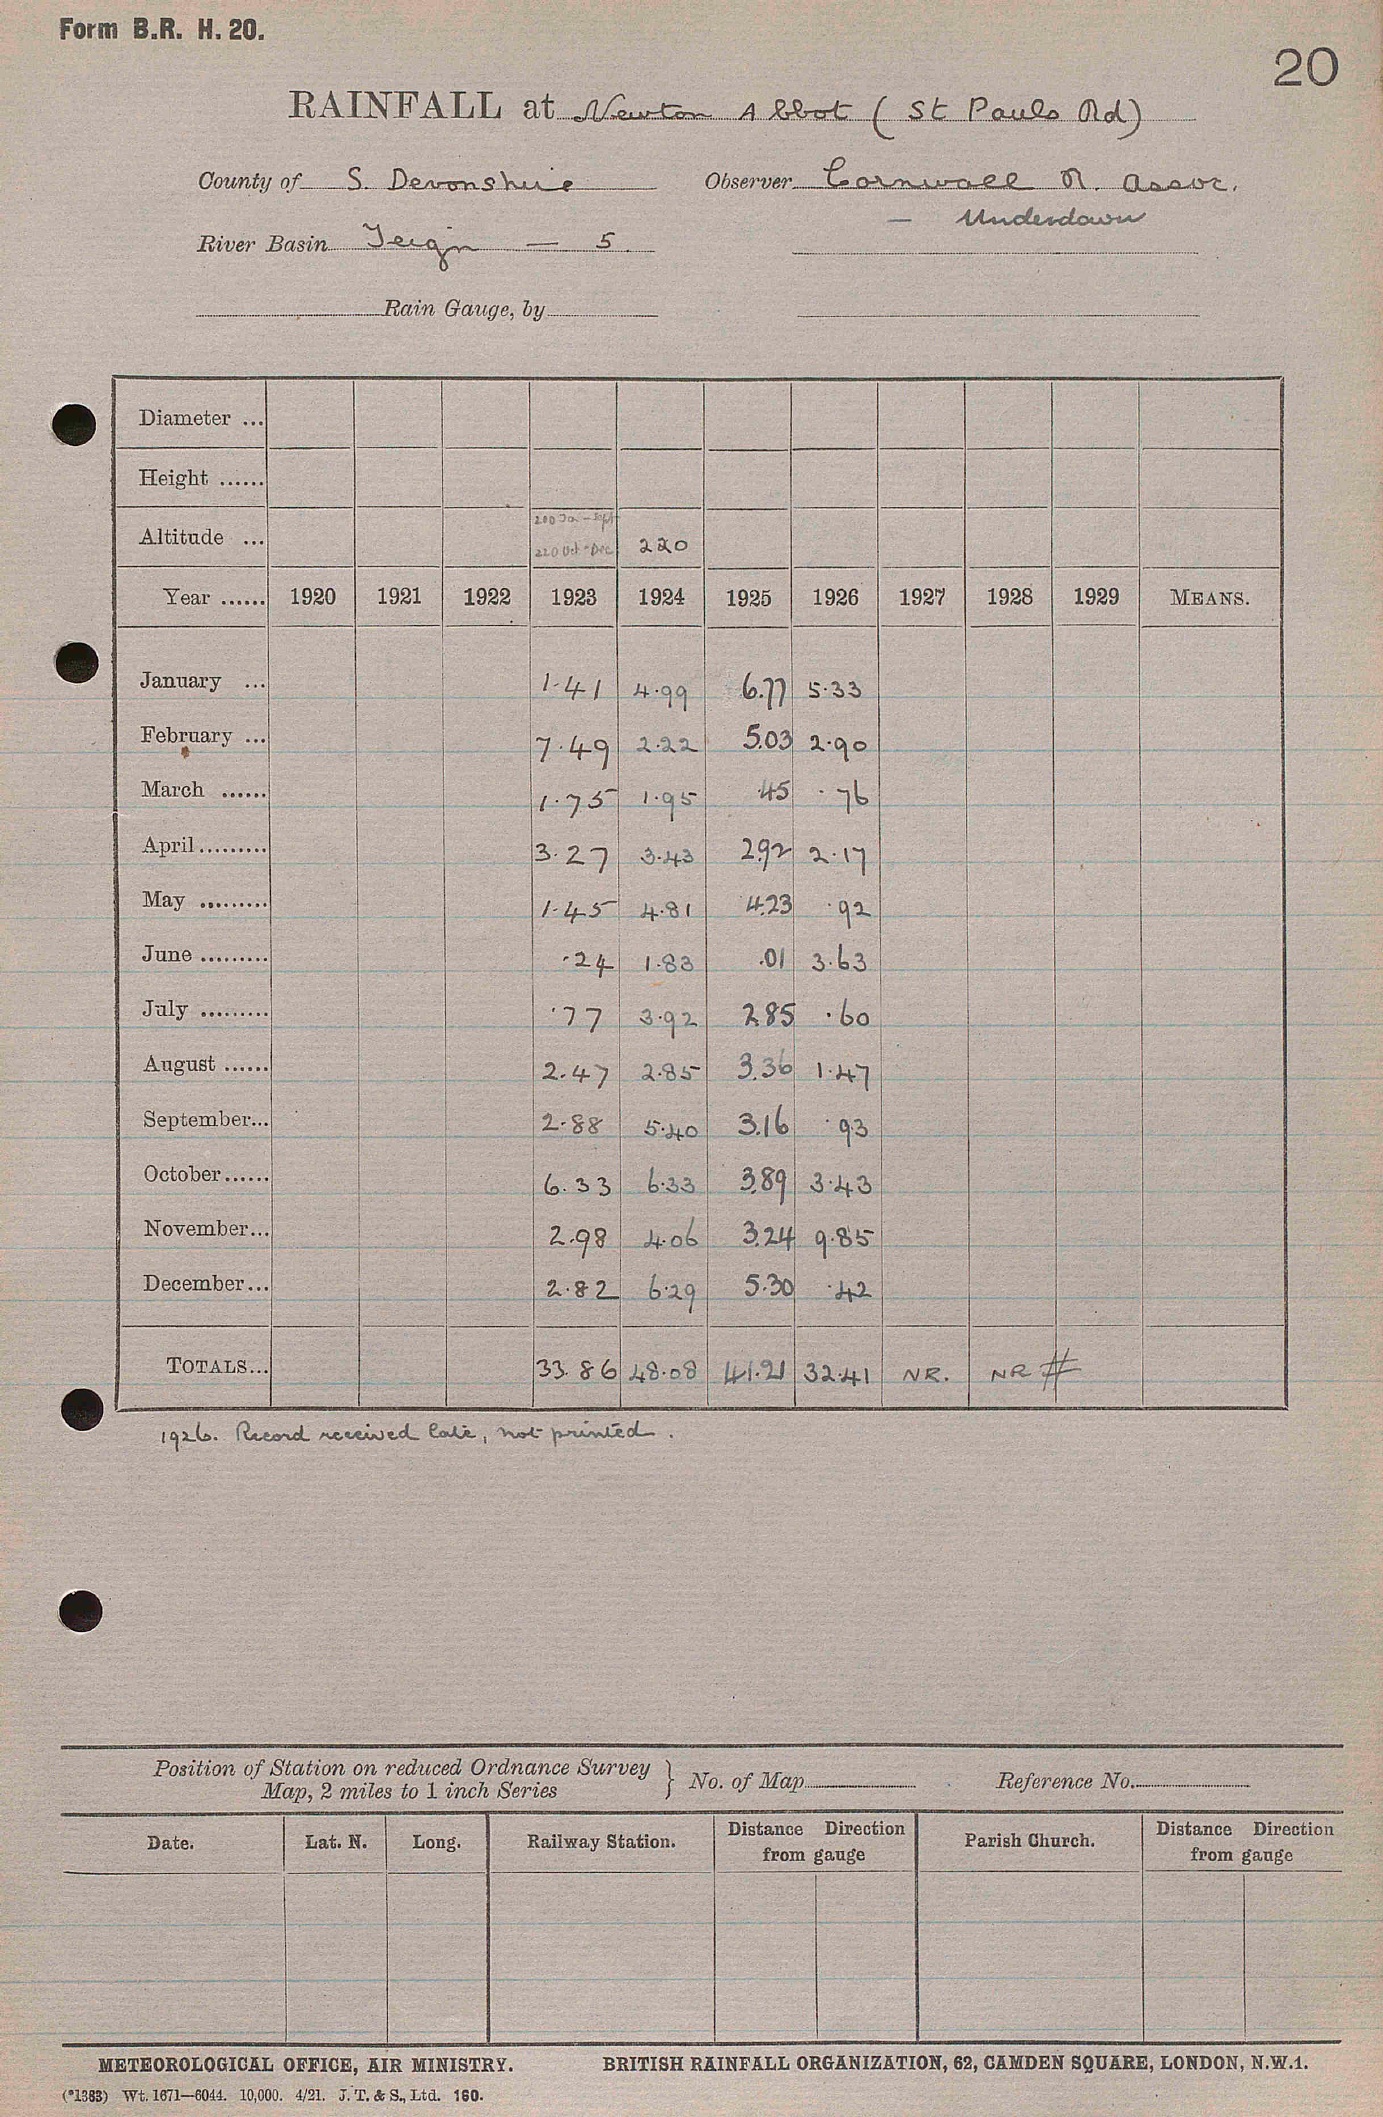 Form B.R. H. 20.
20
RAINFALL at Newton Abbot (St Pauls Rd)
County of S. Devonshire Observer Cornwall R. Assoc.
— Underdown
River Basin Teign — 5
Rain Gauge, by
Diameter ...
Height ......
200 Ja - Sept
Altitude ... 220 Oct - Dec 220
Year ...... 1920 1921 1922 1923 1924 1925 1926 1927 1928 1929 MEANS.
January ... 1.41 4.99 6.77 5.33
February ... 7.49 2.22 5.03 2.90
March ...... 1.75 1.95 .45 .76
April ......... 3.27 3.43 2.92 2.17
May ......... 1.45 4.81 4.23 .92
June ......... .24 1.83 .01 3.63
July ......... .77 3.92 2.85 .60
August ...... 2.47 2.85 3.36 1.47
September... 2.88 5.40 3.16 .93
October...... 6.33 6.33 3.89 3.43
November... 2.98 4.06 3.24 9.85
December... 2.82 6.29 5.30 .42
TOTALS... 33.86 48.08 41.21 32.41 NR. NR #
1926. Record received late, not printed.
Position of Station on reduced Ordnance Survey
Map, 2 miles to 1 inch Series } No. of Map Reference No.
Date. Lat. N. Long. Railway Station. Distance Direction from gauge Parish Church. Distance Direction from gauge
METEOROLOGICAL OFFICE, AIR MINISTRY. BRITISH RAINFALL ORGANIZATION, 62, CAMDEN SQUARE, LONDON, N.W.1.
(*1383) Wt. 1671—6044. 10,000. 4/21. J. T. & S., Ltd. 160.